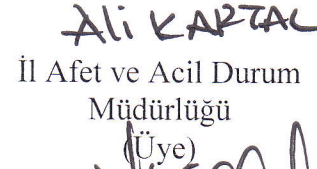 Ali KARTAL
İl Afet ve Acil Durum
Müdürlüğü
(Üye)